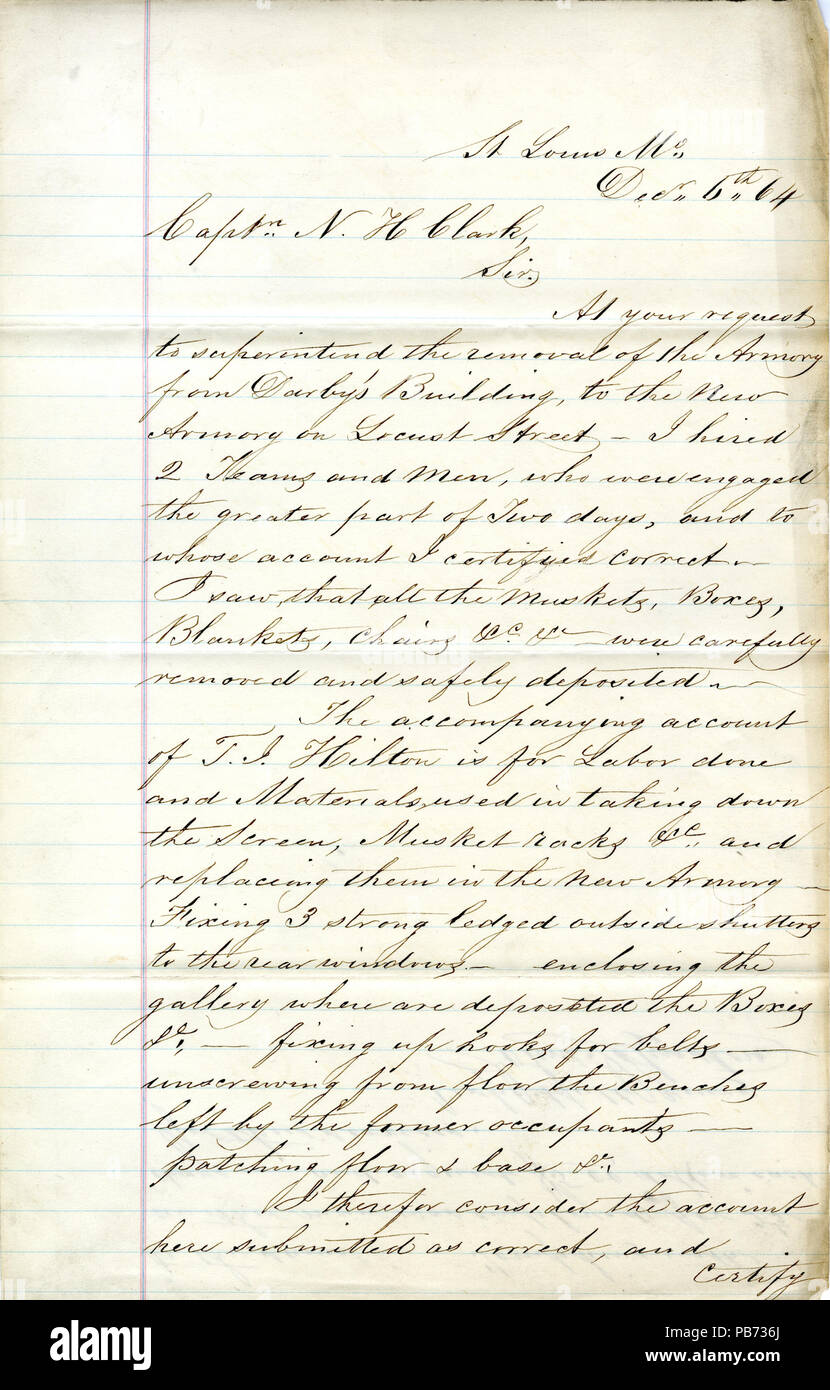 St Louis Mo,
Decr,, 6th,, 64
Captn. N. H Clark,
Sir.
At your request
to superintend the removal of the Armory
from Darby's Building, to the New
Armory on Locust Street — I hired
2 Teams and Men, who were engaged
the greater part of Two days, and to
whose account I certifyed correct —
I saw that all the Muskets, Boxes,
Blankets, Chairs &c. &c — were carefully
removed and safely deposited —
The accompanying account
of T. J. Hilton is for Labor done
and Materials used in taking down
the Screen, Musket racks &c,, and
replacing them in the New Armory —
Fixing 3 strong ledged outside shutters
to the rear windows — enclosing the
gallery where are deposited the Boxes
&c,, — fixing up hooks for belts —
unscrewing from floor the Benches
left by the former occupants —
patching floor & base &c,,
I therefor consider the account
here submitted as correct, and
certify
alamy
Image ID: PB736J
www.alamy.com